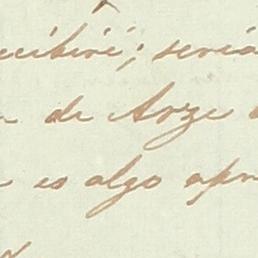 recibiré; seria
de Arze
es algo apr